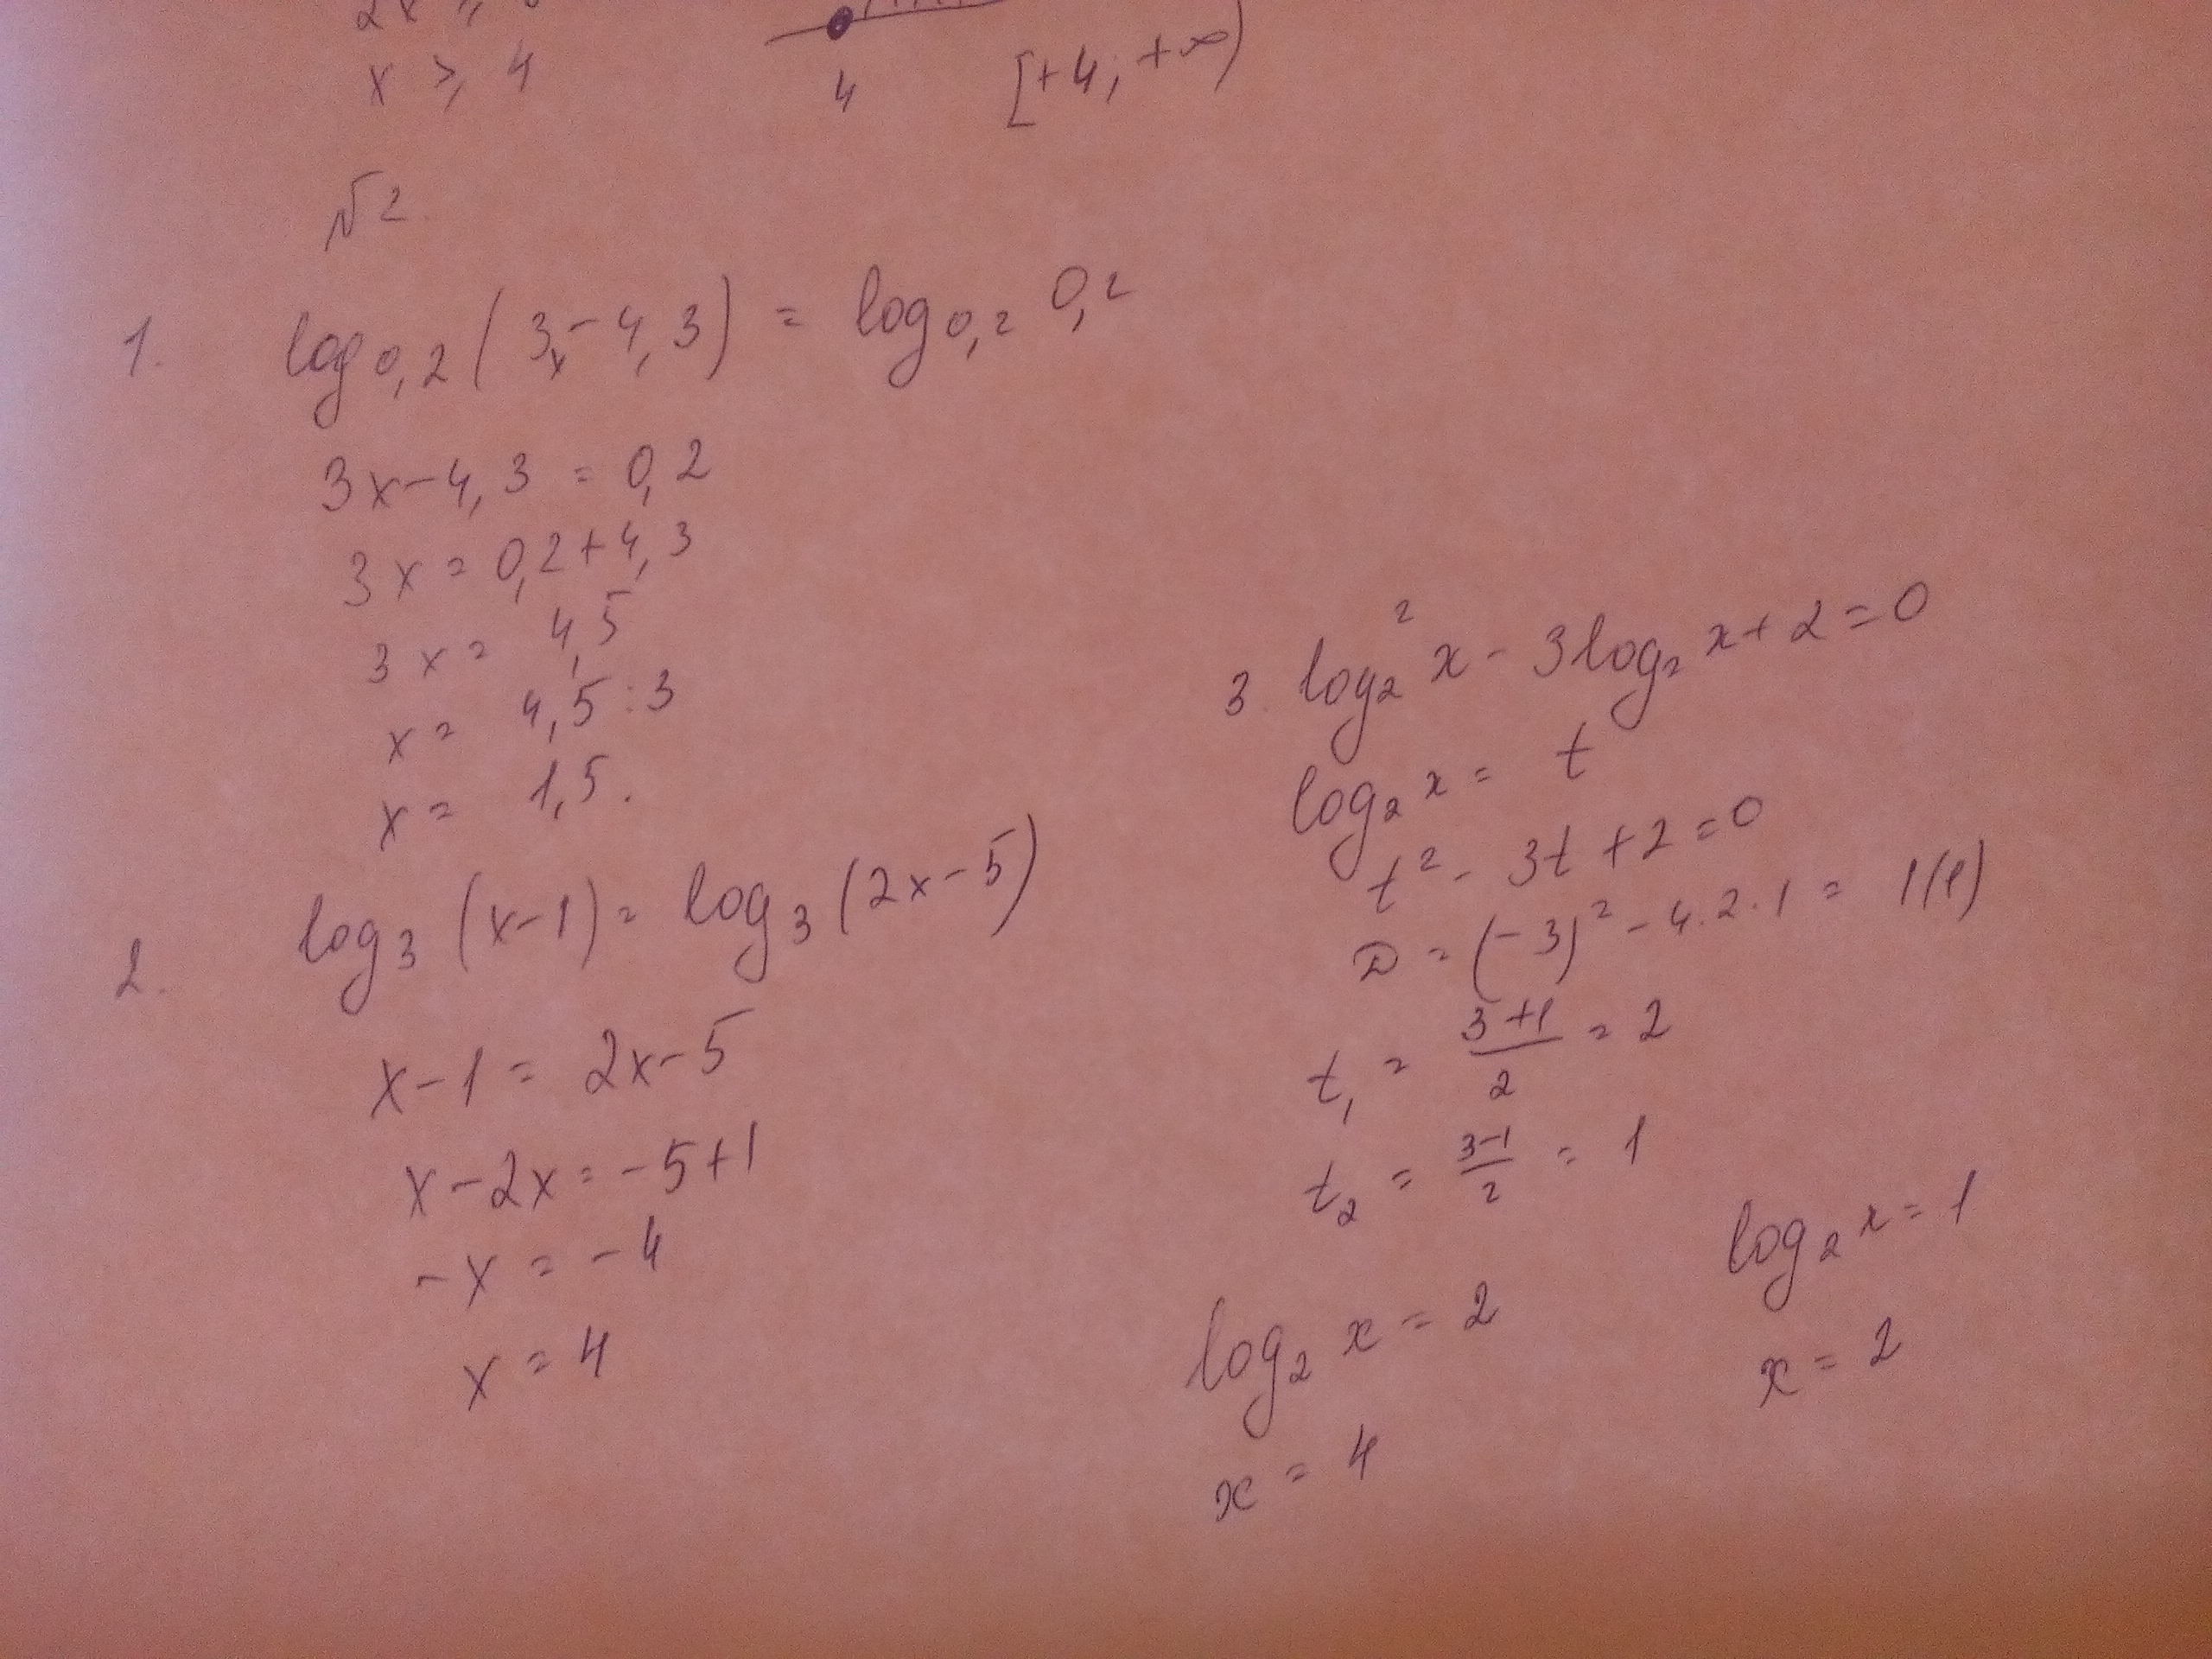 x ⩾ 4
4
[+4; +∞)
№2.
1. log₀,₂(3x−4,3) = log₀,₂ 0,2
3x−4,3 = 0,2
3x = 0,2+4,3
3x = 4,5
x = 4,5:3
x = 1,5.
2. log₃(x−1) = log₃(2x−5)
x−1 = 2x−5
x−2x = −5+1
−x = −4
x = 4
3. log₂² x − 3log₂ x + 2 = 0
log₂ x = t
t² − 3t + 2 = 0
D = (−3)² − 4·2·1 = 1(1)
t₁ = (3+1)/2 = 2
t₂ = (3−1)/2 = 1
log₂ x = 2
x = 4
log₂ x = 1
x = 2